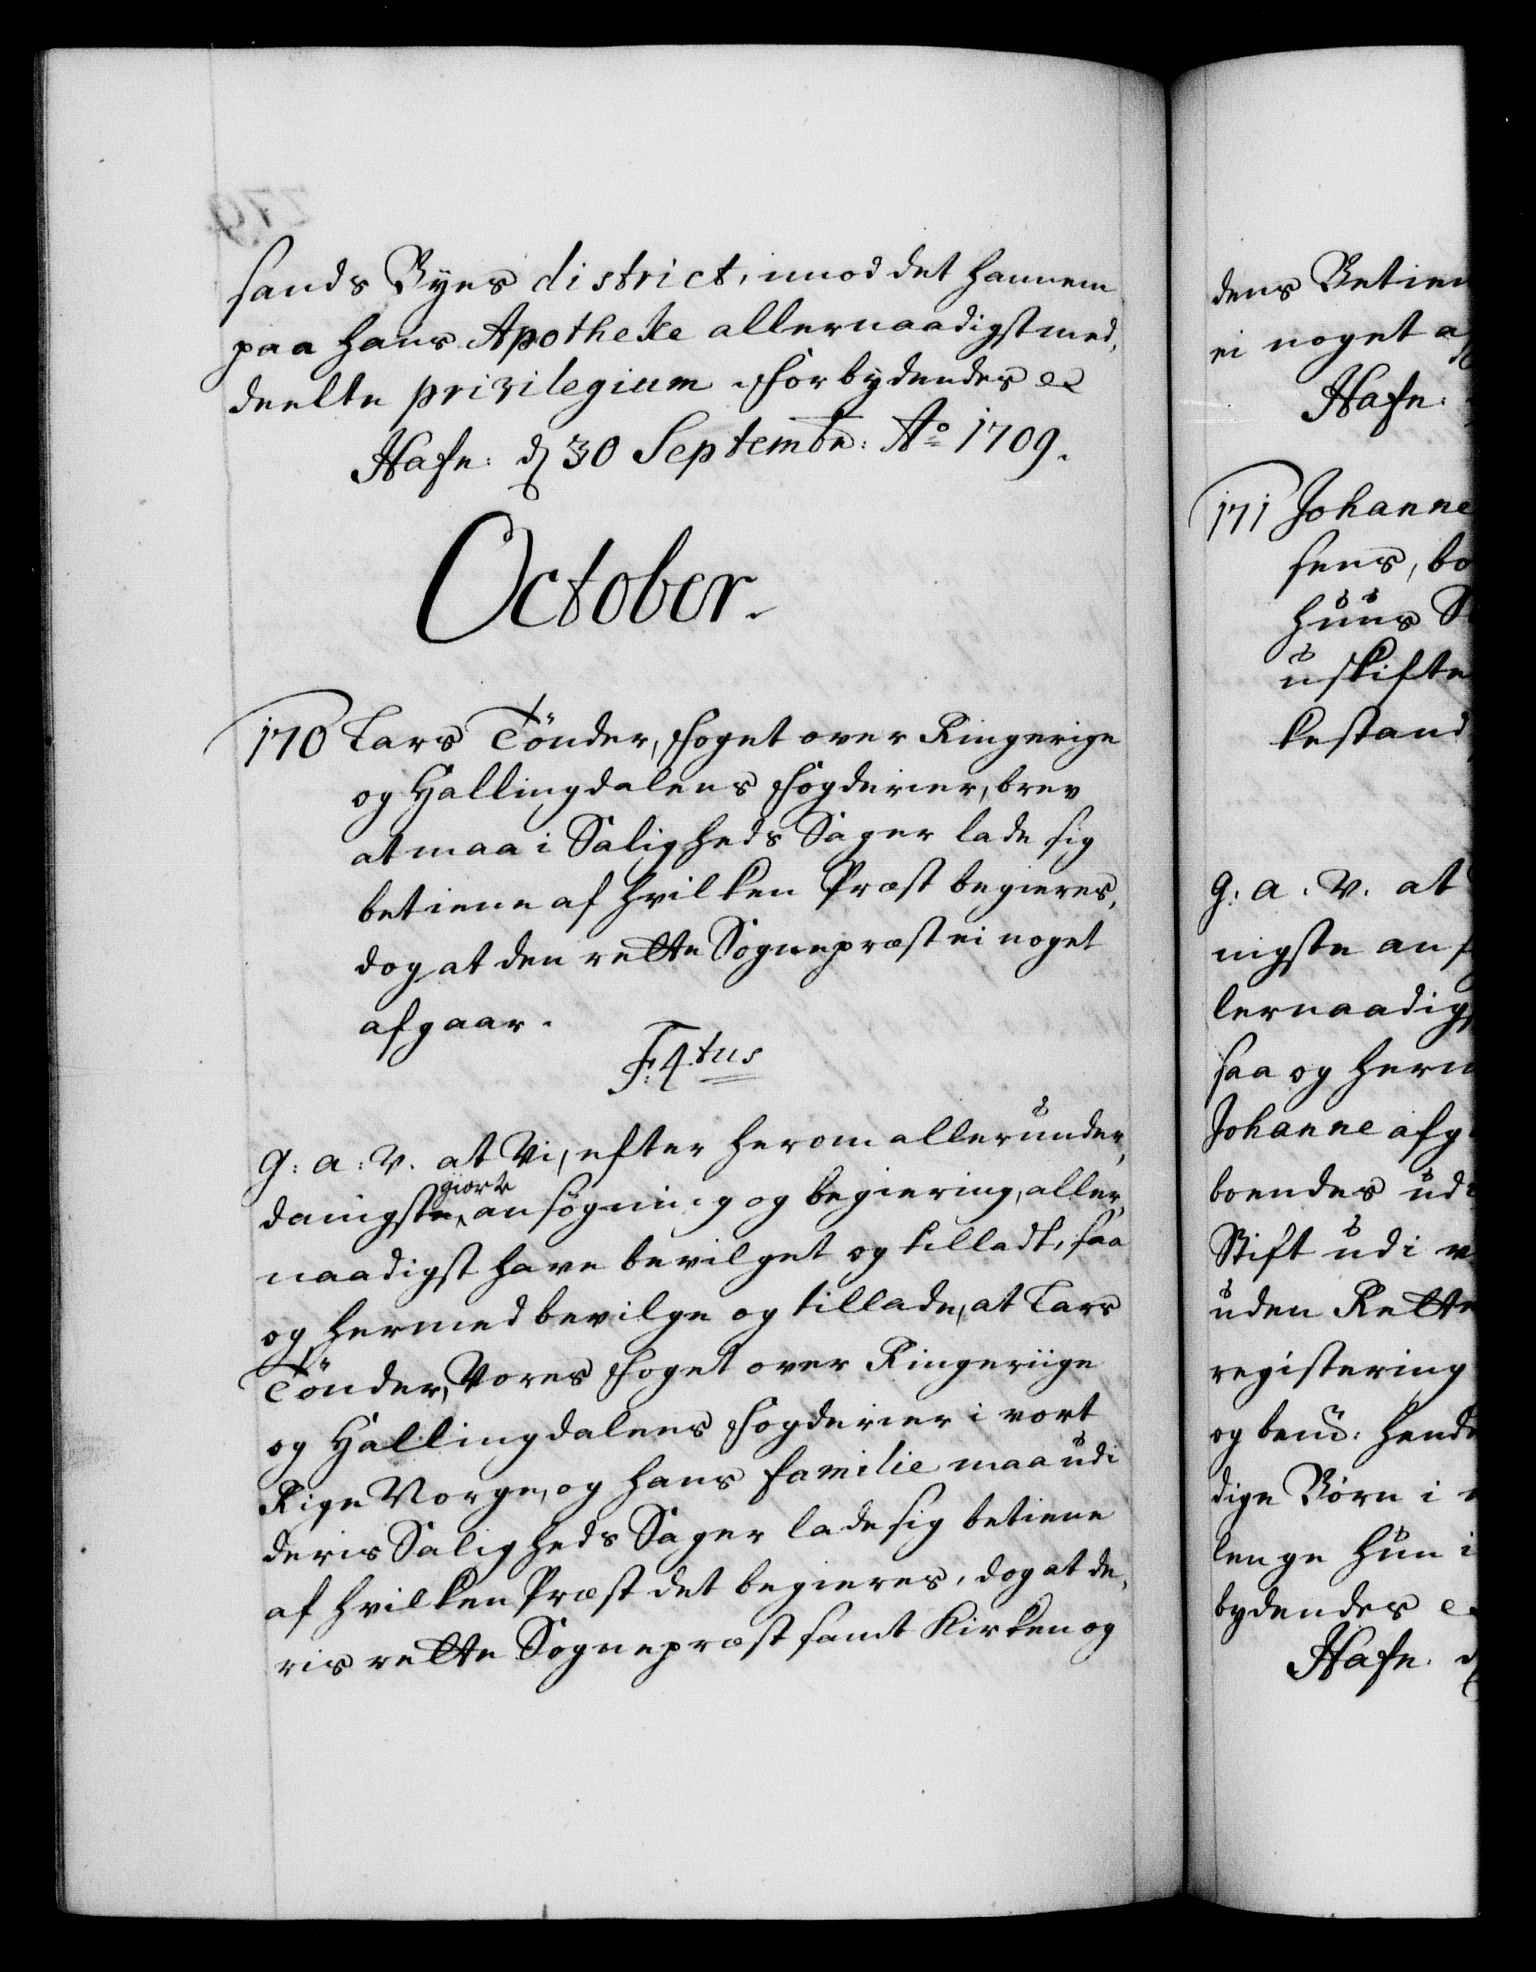 sands Byes district, imod det hannem
paa hans Apotheke allernaadigst med,
deelte privilegium. Forbydendes &c
Hafn: d 30 Septembr: Ao 1709.
October.
170 Lars Tönder, Foget over Ringerige
og Hallingdalens Fogderier, brev
at maa i Saligheds Sager lade sig
betiene af hvilken Præst begieres,
dog at den rette Sognepræst ei noget
afgaar.
F: 4.tus
G: a: V. at Vi, efter herom allerunder,
danigste giorte ansögning og begiering, aller,
naadigst have bevilget og tilladt, saa
og hermed bevilge og tillade, at Lars
Tönder, Vores Foget over Ringeriige
og Hallingdalens Fogderier i vort
Rige Norge, og hans familie maa udi
deris Saligheds Sager lade sig betiene
af hvilken Præst det begieres, dog at de,
ris rette Sognepræst samt Kirken og
dens Betien
ei noget a
Hafn:
171 Johanne
sens, bo
huus S
uskifte
kestand
G: a. V. at
nigste an
lernaadigs
saa og herm
Johanne afg
boendes udi
Stift udi
uden Rette
registering
og bem: hend
dige Börn i
lenge hun i
bydendes &c
Hafn. d